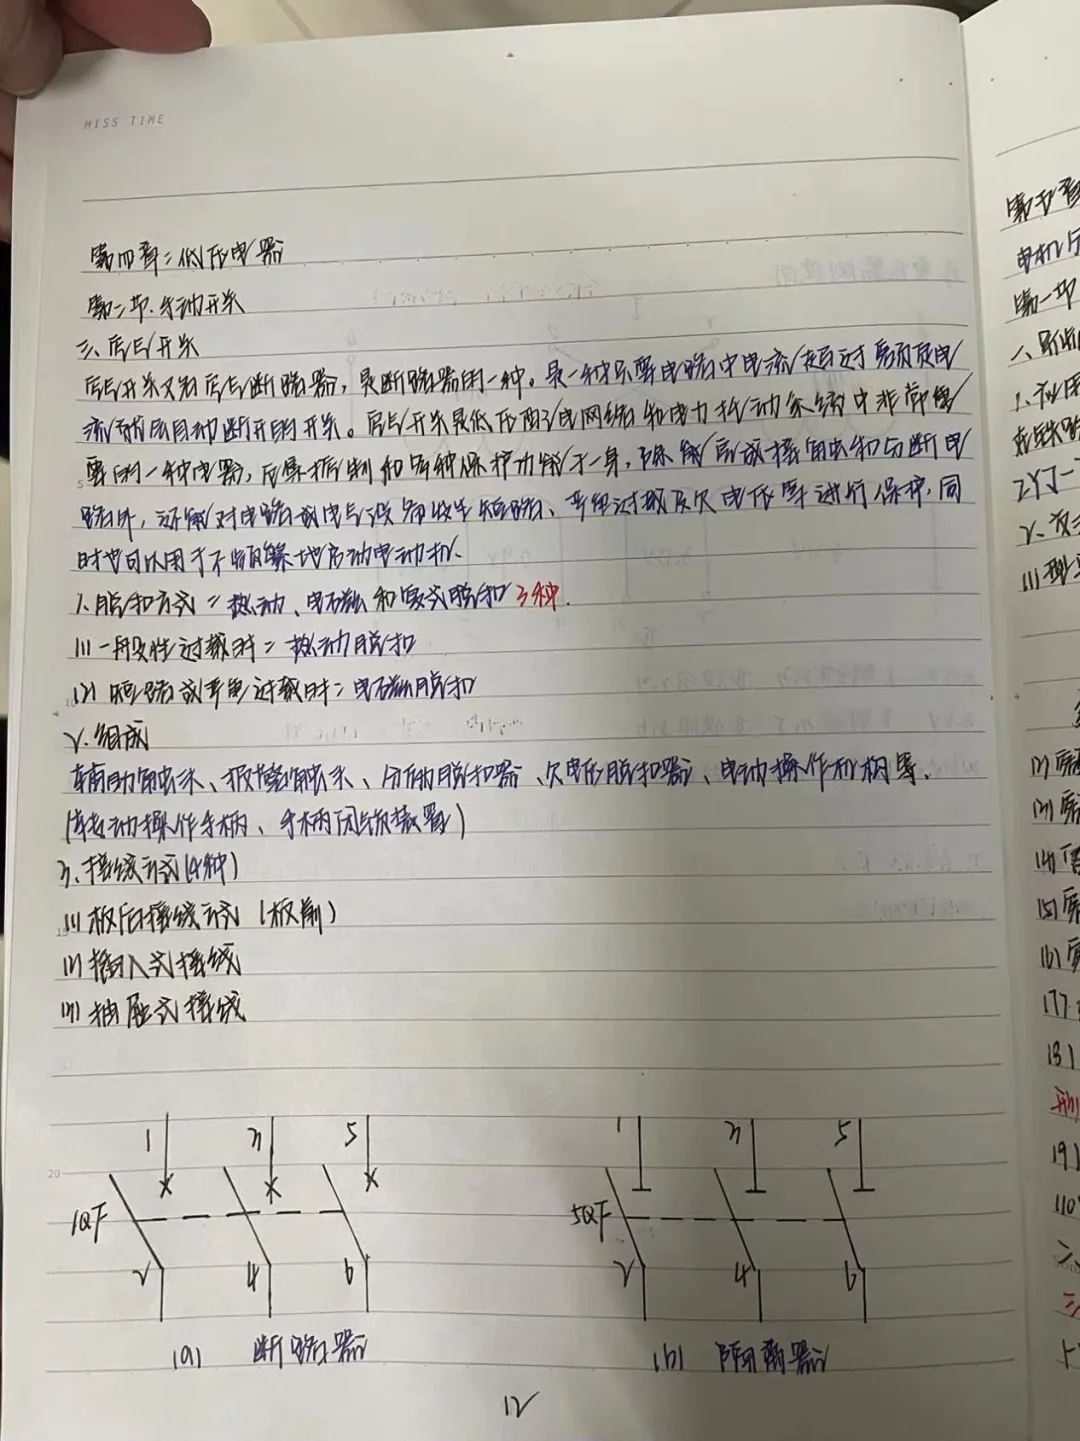 MISS TIME
第四章:低压电器
第二节.手动开关
三、空气开关
空气开关又名空气断路器,是断路器的一种。是一种只要电路中电流超过额定电
流就会自动断开的开关。空气开关是低压配电网络和电力拖动系统中非常重
要的一种电器,它集控制和多种保护功能于一身,除能完成接触和分断电
路外,还能对电路或电气设备发生短路、严重过载及欠电压等进行保护,同
时也可以用于不频繁地启动电动机.
1.脱扣方式:热动、电磁和复式脱扣3种.
(1)一般性过载时:热动脱扣
(2)短路或严重过载时:电磁脱扣
2.组成
辅助触头、报警触头、分励脱扣器、欠电压脱扣器、电动操作机构等.
(转动操作手柄、手柄闭锁装置)
3.接线方式(4种)
(1)板后接线方式(板前)
(2)插入式接线
(3)抽屉式接线
1 3 5
1QF
2 4 6
(a) 断路器
1 3 5
5QF
2 4 6
(b) 隔离器
12
第五章
电机
第一节